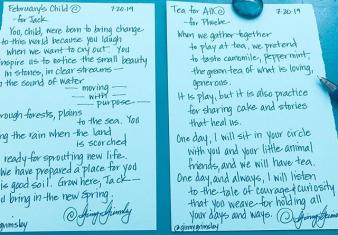 February's Child © 7-20-19
-for Jack
You, child, were born to bring change
to this world because you laugh
when we want to cry out. You
inspire us to notice the small beauty
in stones, in clear streams-
the sound of water
moving
with
purpose
through forests, plains
to the sea. You
bring the rain when the land
is scorched
ready for sprouting new life.
We have prepared a place for you
is good soil. Grow here, Jack-
d bring in the new Spring.
@ginnygrimsley
Tea for All © 7-20-19
-for Phoebe-
When we gather together
to play at tea, we pretend
to taste camomile, peppermint,
the green tea of what is loving,
generous.
It is play, but it is also practice
for sharing cake and stories
that heal us.
One day, I will sit in your circle
with you and your little animal
friends, and we will have tea.
One day, and always, I will listen
to the tale of courage & curiosity
that you weave-for holding all
your days and ways.
@ginnygrimsley